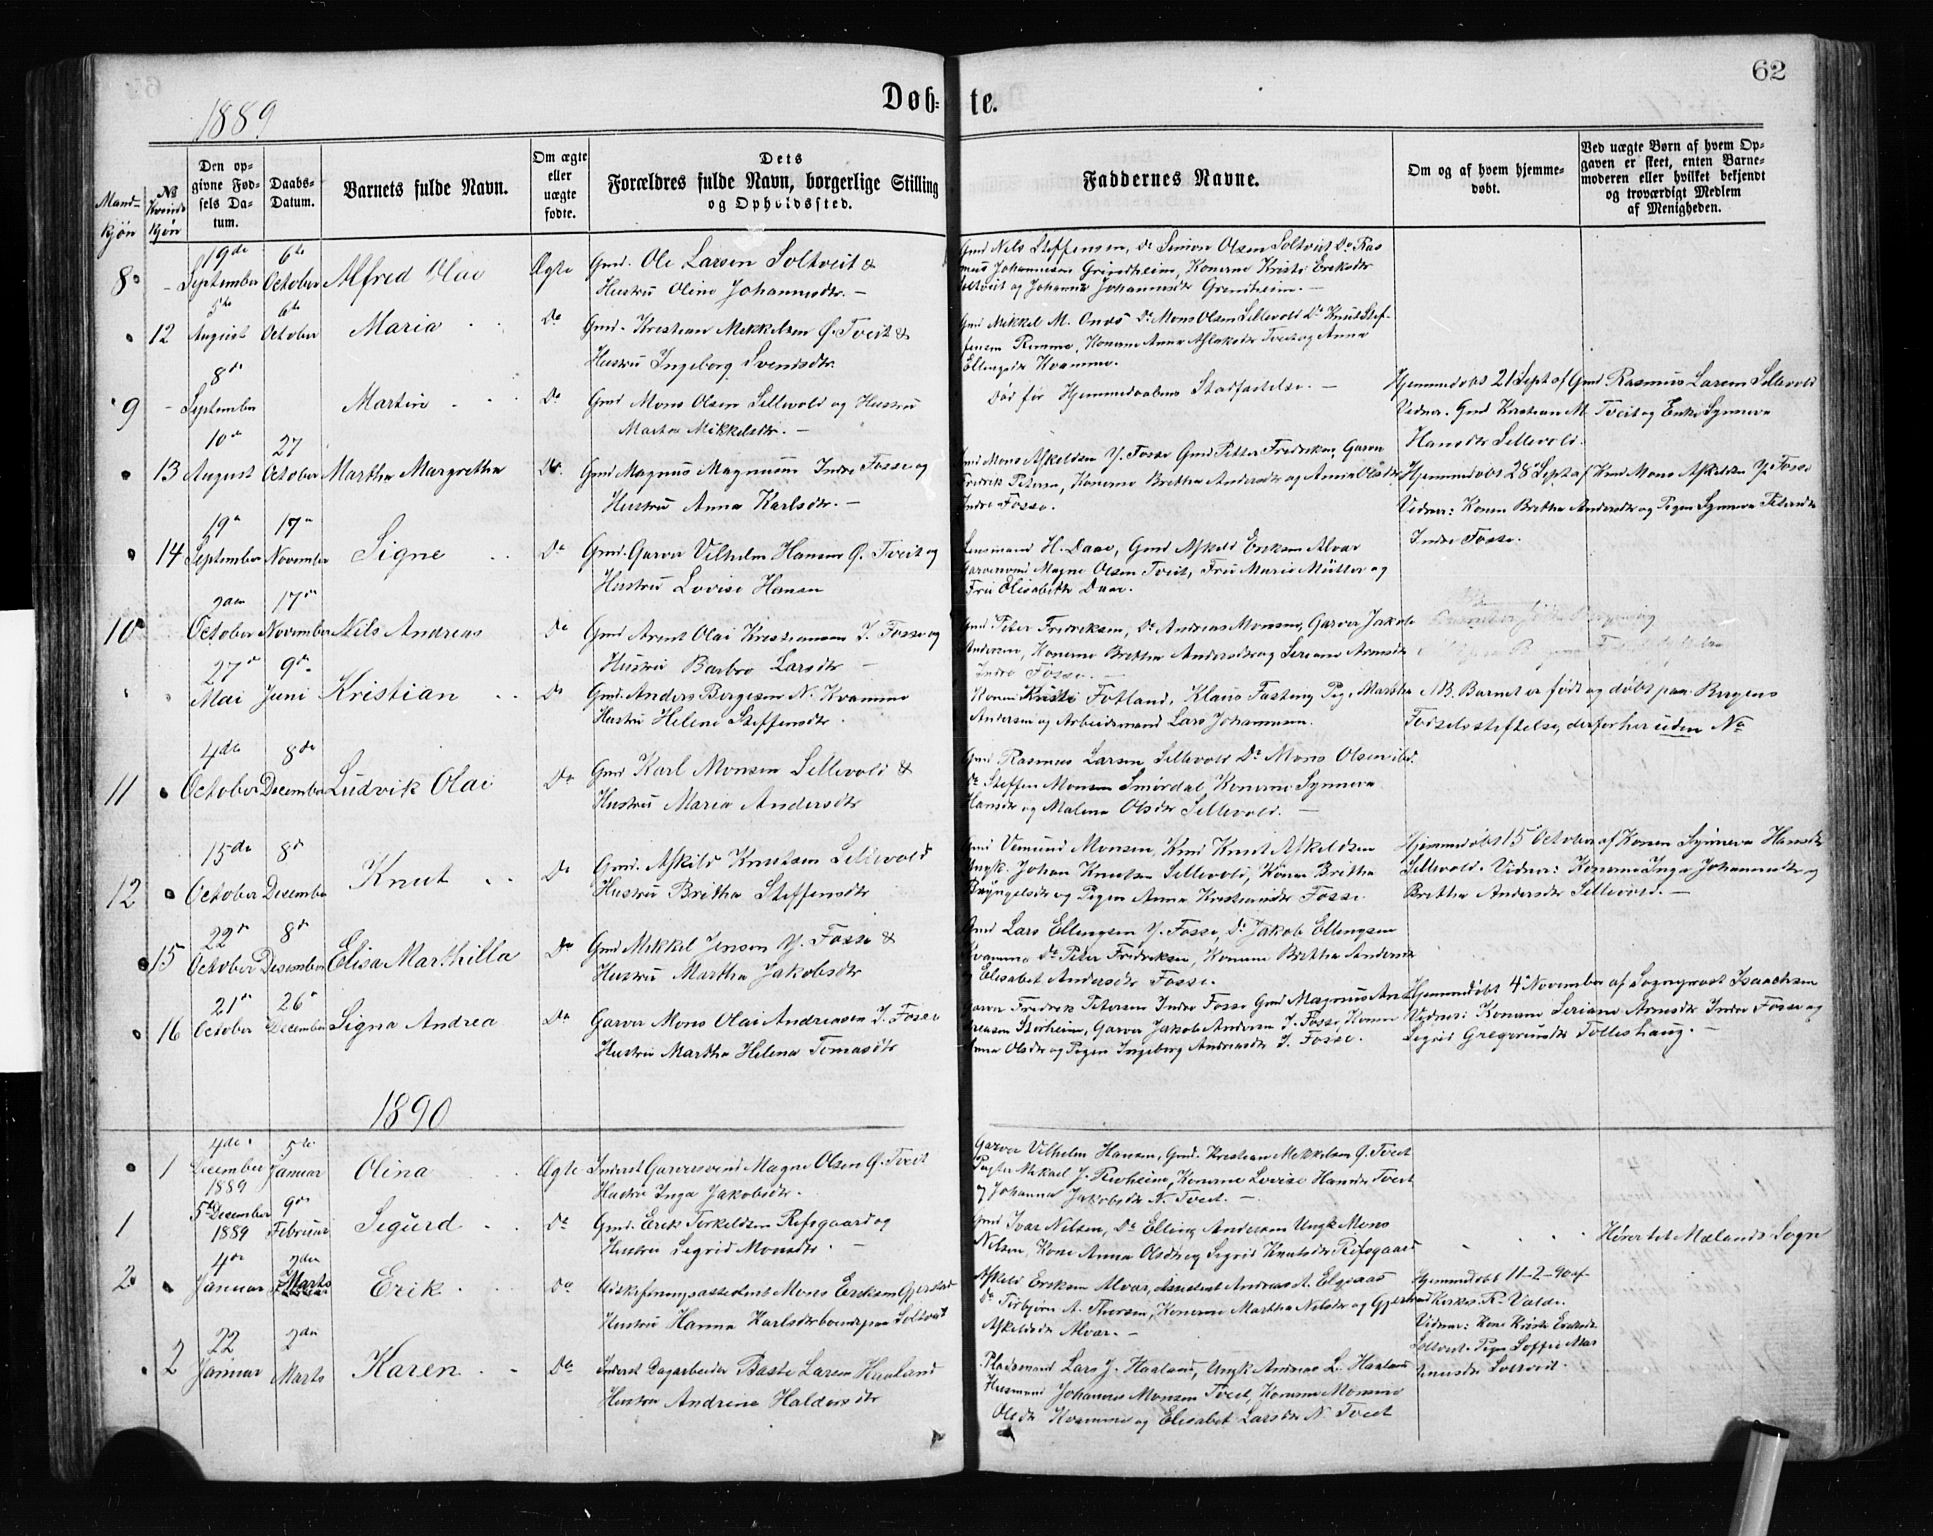 62
Døb-te.
1889
Mand-kjøn
№ Kvinde kjøn
Den op-
givne Fød-
sels Da-
tum.
Daabs-
Datum.
Barnets fulde Navn.
Om ægte
eller
uægte
fødte.
Dets
Forældres fulde Navn, borgerlige Stilling
og Opholdssted.
Faddernes Navne.
Om og af hvem hjemme-
døbt.
Ved uægte Børn af hvem Op-
gaven er skeet, enten Barne-
moderen eller hvilket bekjendt
og troværdigt Medlem
af Menigheden.
8 - 19de September 6te October Alfred Olai Ægte Gmd. Ole Larsen Soltveit &
Hustru Oline Johannesdtr. -
Gmd Nils Steffensen, Do Simon Olsen Soltveit Do Ras
mus Johannesen Grindheim, Konerne Kristi Eriksdtr
Soltveit og Johanna Johannesdtr Grindheim. -
12 5te August 6te October Maria Do Gmd. Kristian Mikkelsen Ø. Tveit &
Hustru Ingeborg Svendsdtr.
Gmd Mikkel M. Do Mons Olsen Sellevold Do Knud Stef-
fensen Romme, Konerne Anna Aslaksdtr Tveit og Anna
Ellingsdtr Kvamme.
9 - 8de September Martin Do Gmd Mons Olsen Sellevold og Hustru
Martha Mikkelsdtr. -
Død før Hjemmedaabens Stadfæstelse. -
Hjemmedøbt 21 Sept af Gmd Rasmus Larsen Sellevold
Vidner. Gmd Kristian M. Tveit og Enke Synneva
Hansdtr Sellevold.
13 10de August 27 October Martha Margretha Do. Gmd Magnus Magnusen Indre Fosse og
Hustru Anna Karlsdtr. -
Gmd Mons Askeldsen Y. Fosse Gmd Petter Fredriksen, Garver
Fredrik Petersen, Konerne Brettha Andersdtr og Anna Olsdtr
Indre Fosse.
Hjemmedøbt 28 Sept af Kmd Mons Askeldsen Y. Fosse
Vidner: Konen Brettha Andersdtr og Pigen Synneva Petersdtr
Indre Fosse.
14 19de September 17de November Signe Do Gmd. Garver Vilhelm Hansen Ø. Tveit og
Hustru Lovise Hansen
Lensmand H. Daae, Gmd Askeld Eriksen Alvær
Garversvend Magne Olsen Tveit, Fru Marie Müller og
Fru Elisabeth Daae.
10 October 17de November Nils Andreas Do Gmd Arent Olai Kristiansen I. Fosse og
Hustru Barbro Larsdtr -
Gmd Peter Fredriksen, Do Andreas Monsen, Garver Jakob
Andersen, Konerne Brettha Andersdtr og Seriane Arnesdtr
Indre Fosse. -
27de Mai 9de Juni Kristian Do Gmd. Anders Børgesen N. Kvamme
Hustru Helene Steffensdtr.
Konen Kristi Fotland, Klaus Fasting Pige Martha
Andersen og Arbeidsmand Lars Johannesen.
NB. Barnet er født og døbt paa Bergens
Fødselsstiftelse, derfor her uden No
11 4de October 8de December Ludvik Olai Do Gmd Karl Monsen Sellevold &
Hustru Maria Andersdtr
Gmd Rasmus Larsen Sellevold Do Mons Olsen ibd.
Do Steffen Monsen Smørdal, Konerne Synneva
Hansdtr og Malena Olsdtr Sellevold. -
12 15de October 8de December Knut Do Gmd. Askild Knutsen Sellevold
Hustru Britha Steffensdtr
Gmd Vemund Monsen, Kmd Knut Askeldsen
Ungk. Johan Knutsen Sellevold, Konen Britha
Bryngelsdtr og Pigen Anna Kristiansdtr Fosse.
Hjemmedøbt 15 October af Konen Synneva Hansdtr
Sellevold. Vidner: Konerne Inga Johannesdtr og
Brettha Andersdtr Sellevold. -
15 22de October 8de Desember Elisa Marthilla Do Gmd Mikkel Jensen Y. Fosse &
Hustru Martha Jakobsdtr
Gmd Lars Ellingsen Y. Fosse, Do Jakob Ellingsen
Kvamme Do Peter Fredriksen, Konerne Brettha Andersdtr
og Elisabet Andersdtr Fosse.
16 21de October 26de December Signa Andrea Do Garver Mons Olai Andreasen I. Fosse
Hustru Martha Helena Tomasdtr
Garver Fredrik Petersen Indre Fosse Gmd Magnus An-
dreasen Storheim, Garver Jakob Andersen I. Fosse, Konen
Anna Olsdtr og Pigen Ingeborg Andreasdtr I. Fosse.
Hjemmedøbt 4 November af Sogneprest Isaachsen
Vidner: Konerne Seriane Arnesdtr Indre Fosse og
Sigrid Gregoriusdtr Tolleshaug. -
1890
1 4de December 1889 5te Januar Olina Ægte Inderst Garversvend Magne Olsen Ø. Tveit
Hustru Inga Jakobsdtr.
Garver Vilhelm Hansen, Gmd. Kristian Mikkelsen Ø. Tveit
Mikael J. Konerne Lovise Hansdtr Tveit
og Johanna Jakobsdtr N. Tveit. -
1 5te December 1889 9de Februar Sigurd Do Gmd. Erik Torkeldsen Refsgaard og
Hustru Sigrid Monsdtr. -
Gmd Ivar Nilsen, Do Elling Andersen Ungk Mons
Nilsen, Kone Anna Olsdtr og Sigrid Knutsdtr Refsgaard
Hører til Mælands Sogn
2 4de Januar 2den Marts Erik Do Udskiftningsassistent Mons Eriksen Gjerstad
Hustru Hanna Karlsdtr boende paa Soltveit
Askeld Eriksen Alvær, Assistent Andreas A.
Do Torbjørn A. Thorsen, Konerne Martha Nilsdtr og Gjertrud
Askeldsdtr Alvær. -
Hjemmedøbt 11-2-90 af
Kirkes. R. Valde.
Vidner: Kone Kristi Eriksdtr
Soltveit. Pigen Soffie Mar
tinusdtr Soltveit.
2 22 Januar 2den Marts Karen Do Inderst Dagarbeider Baste Larsen Haaland
Hustru Andrine Haldorsdtr
Pladsmand Lars J. Haaland, Ungk Andreas L. Haaland
Husmand Johannes Monsen Tveit, Konerne Monsine
Olsdtr Kvamme og Elisabet Larsdtr N. Tveit